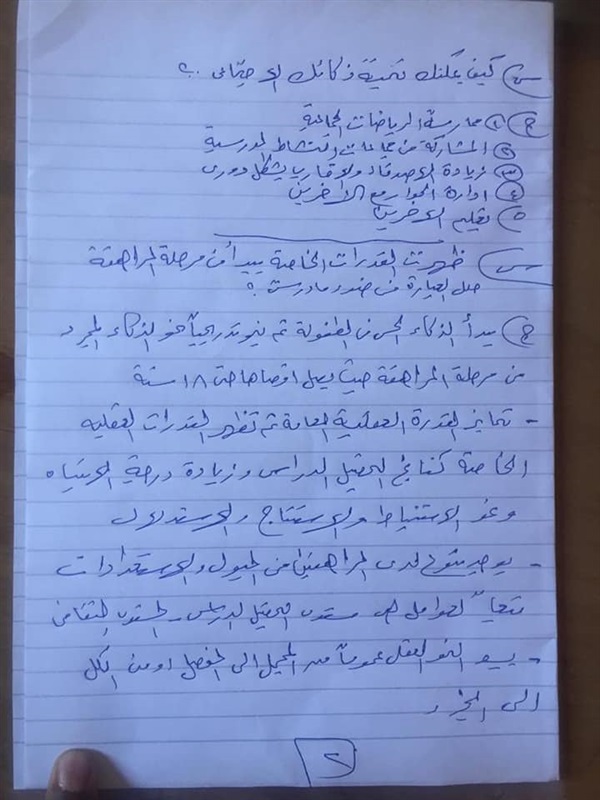 س) كيف يمكنك تنمية ذكائك الاجتماعى ..؟
ج) ① ممارسة الرياضات الجماعية
② المشاركة فى جماعات النشاط المدرسية
③ زيادة الاصدقاء والاقارب بشكل دورى
④ ادارة الحوار مع الاخرين
⑤ تعليم الاخرين
س) ظهرت القدرات الخاصة يبدأ من مرحلة المراهقة
حلل العبارة فى ضوء ما درست ؟
ج) يبدأ الذكاء الحسى فى الطفولة ثم ينمو تدريجياً نحو الذكاء المجرد
من مرحلة المراهقة حيث يصل اقصاها حتى ١٨ سنة
- تمايز القدرة العقلية العامة ثم تظهر القدرات العقليه
الخاصة كنتائج التحصيل الدراسى وزيادة درجة الانتباه
ونمو الاستنباط والاستنتاج والاستدلال
- يوجد تنوع لدى المراهقين فى الميول والاستعدادات
لعوامل هى مستوى التحصيل الدراسى - المستوى الثقافى
- يسير النمو العقلى عموماً من المجمل الى المفصل او من الكل
الى الجزء
٢